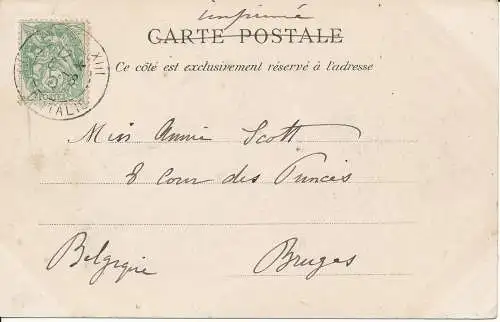 imprimé
CARTE POSTALE
Ce côté est exclusivement réservé à l'adresse
XIII
D'ITALIE
Miss Annie Scott
8 Cour des Princes
Belgique Bruges